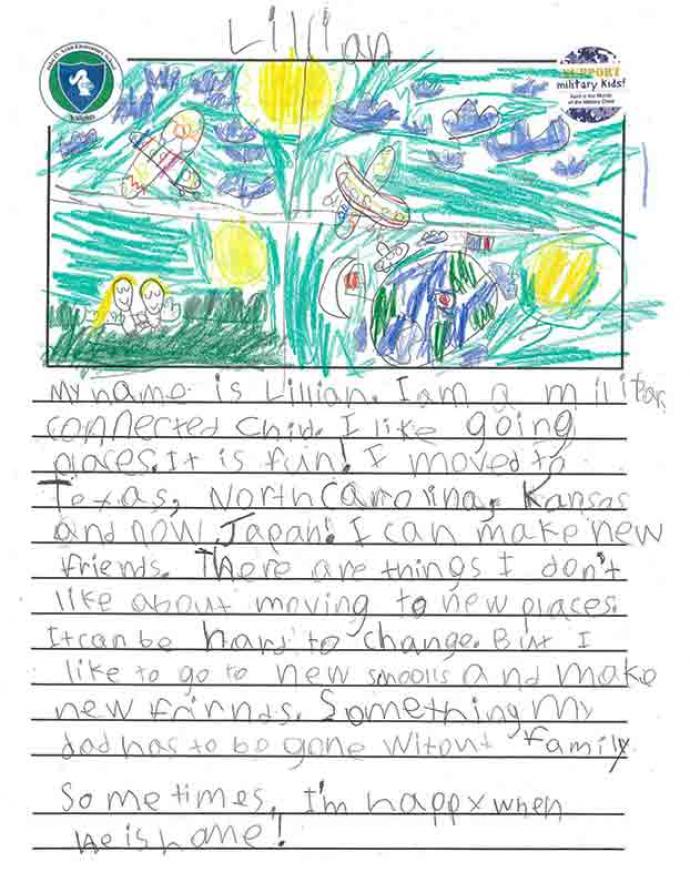 Lillian
SUPPORT
military Kids!
April is the Month
of the Military Child
Knights
My name is Lillian. I am a militar
connected Chid. I like going
places. It is fun! I moved to
Texas, North Carolina, Kansas
and now Japan! I can make new
friends. There are things I don't
like about moving to new places.
It can be hard to change. But I
like to go to new smools and make
new frirnds. Something my
dad has to be gone witout family
Some times, I'm happy when
he is home!